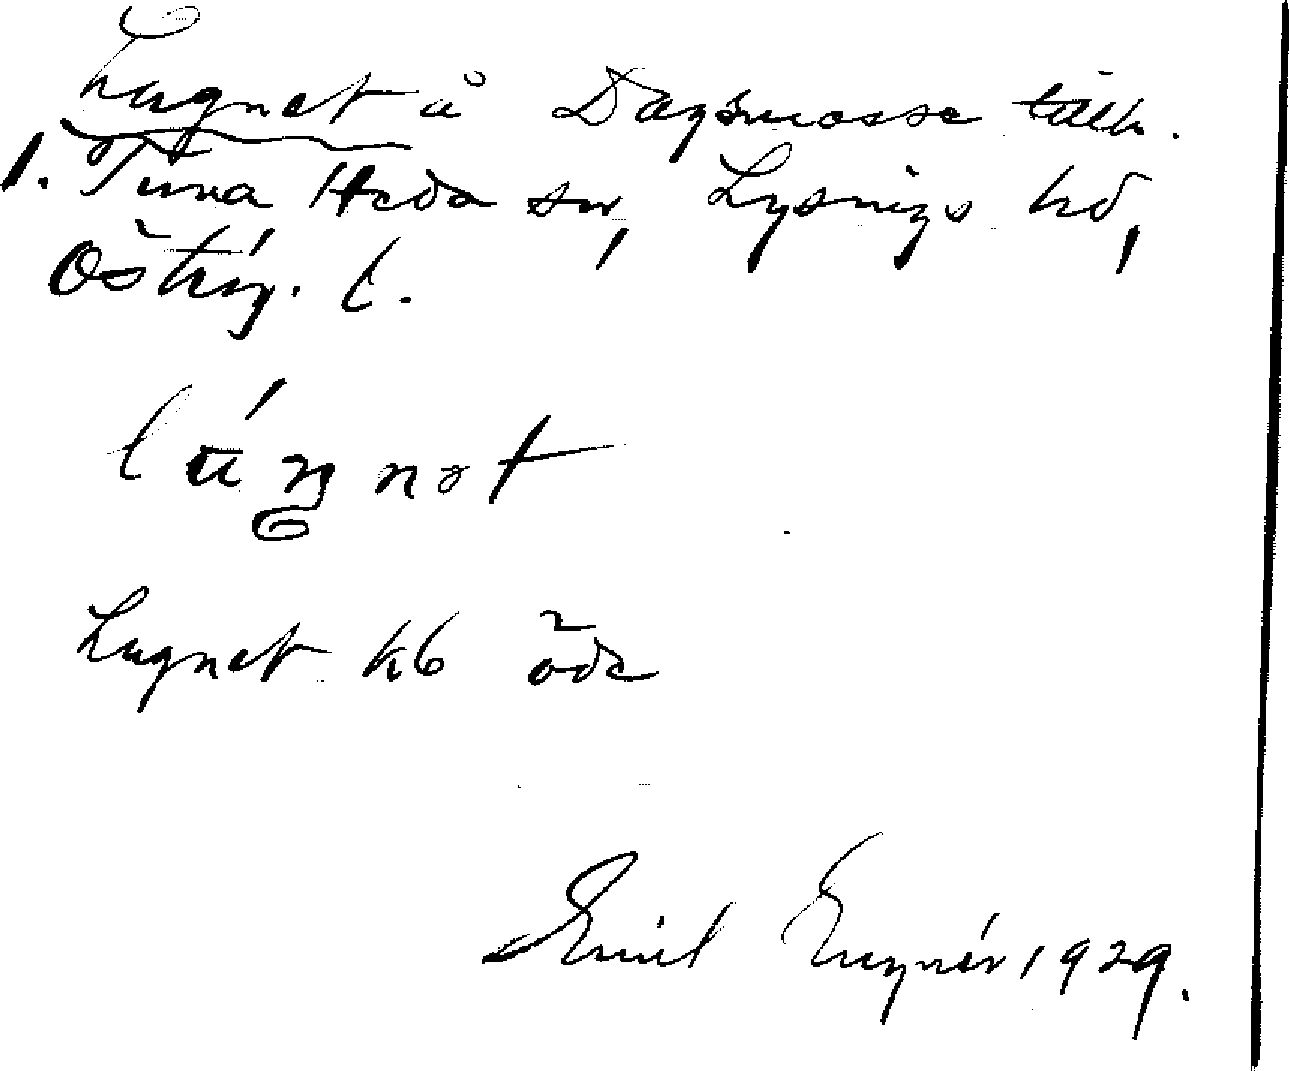 Lugnet å Dagsmosse tillh.
1. Tuna Heda sn, Lysings hd,
Östg. l.
lúŋnət
Lugnet kb öde
Emil 1929.